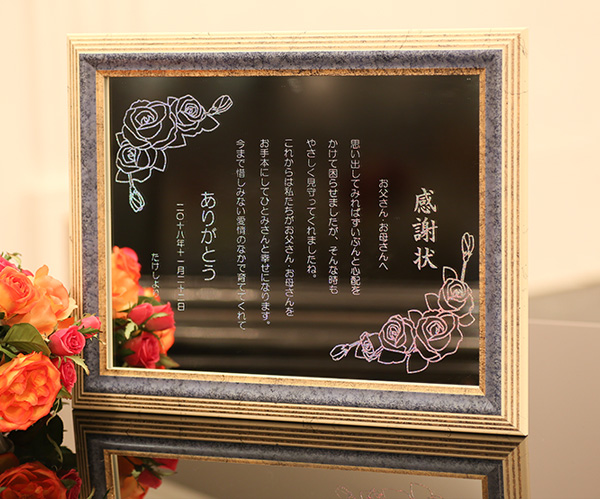 感謝状
お父さん・お母さんへ
思い出してみればずいぶんと心配を
かけて困らせましたが、そんな時も
やさしく見守ってくれましたね。
これからは私たちがお父さん・お母さんを
お手本にしてひとみさんと幸せになります。
今まで惜しみない愛情のなかで育ててくれて
ありがとう
二〇十八年十二月二十二日
たけしより